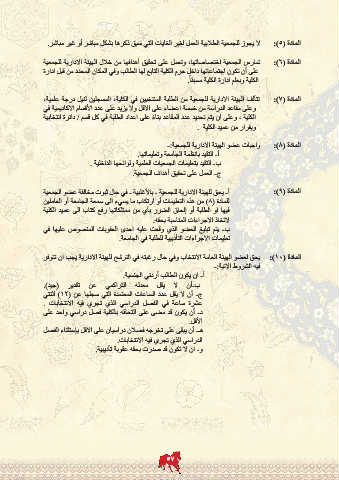 المادة (٥): لا يجوز للجمعية الطلابية العمل لغير الغايات التي سبق ذكرها بشكل مباشر أو غير مباشر.
المادة (٦): تمارس الجمعية اختصاصاتها، وتعمل على تحقيق أهدافها من خلال الهيئة الإدارية للجمعية
على أن تكون اجتماعاتها داخل حرم الكلية التابع لها الطالب وفي المكان المحدد من قبل ادارة
الكلية وبعلم ادارة الكلية مسبقاً.
المادة (٧): تتألف الهيئة الإدارية للجمعية من الطلبة المنتخبين في الكلية، المسجلين لنيل درجة علمية،
وعلى مقاعد الدراسة من خمسة اعضاء على الاقل ولا يزيد على عدد الأقسام الاكاديمية في
الكلية ، وعلى أن يتم تحديد عدد المقاعد بناءً على اعداد الطلبة في كل قسم / دائرة انتخابية
وبقرار من عميد الكلية .
المادة (٨): واجبات عضو الهيئة الإدارية للجمعية:-
أ- التقيد بأنظمة الجامعة وتعليماتها.
ب- التقيد بتعليمات الجمعيات العلمية ولوائحها الداخلية .
ج- العمل على تحقيق أهداف الجمعية.
المادة (٩): أ- يحق للهيئة الادارية للجمعية ، بالأغلبية ، في حال ثبوت مخالفة عضو الجمعية
للمادة (٨) من هذه التعليمات أو ارتكاب ما يسيء الى سمعة الجامعة أو العاملين
فيها او الطلبة أو إلحاق الضرر بأي من ممتلكاتها رفع كتاب الى عميد الكلية
لاتخاذ الاجراءات المناسبة بحقه.
ب- يتم تبليغ العضو الذي وقعت عليه أحدى العقوبات المنصوص عليها في
تعليمات الإجراءات التأديبية للطلبة في الجامعة.
المادة (١٠): يحق لعضو الهيئة العامة الانتخاب وفي حال رغبته في الترشح للهيئة الإدارية يجب ان تتوفر
فيه الشروط الآتية:-
أ- ان يكون الطالب أردني الجنسية.
ب-أن لا يقل معدله التراكمي عن تقدير (جيد).
ج- أن لا يقل عدد الساعات المعتمدة التي سجلها عن (١٢) اثنتي
عشرة ساعة في الفصل الدراسي الذي تجري فيه الانتخابات .
د- أن يكون قد مضى على التحاقه بالكلية فصل دراسي واحد على
الأقل.
هـ- أن يبقى على تخرجه فصلان دراسيان على الاقل بإستثناء الفصل
الدراسي الذي تجري فيه الانتخابات.
و- ان لا تكون قد صدرت بحقه عقوبة تأديبية.